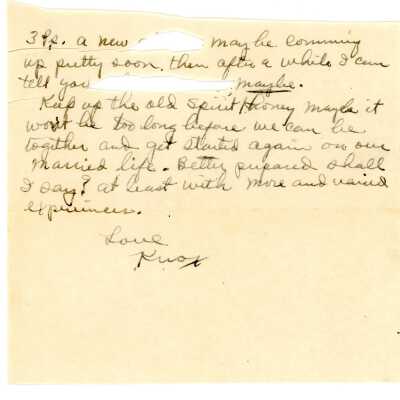 3 Ps. a new may be comming
up pretty soon. then after a while I can
tell you maybe.
Keep up the old spirit Honey maybe it
wont be too long before we can be
together and get started again on our
married life. Betty prepared shall
I say? at least with more and varied
experiences.
Love
Knox